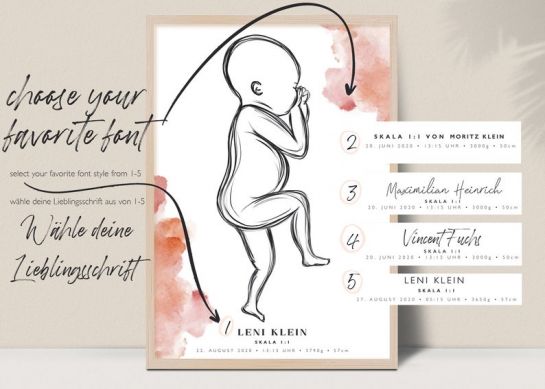 choose your
favorite font
select your favorite font style from 1-5
wähle deine Lieblingsschrift aus von 1-5
Wähle deine
Lieblingsschrift
1 LENI KLEIN
SKALA 1:1
22. AUGUST 2020 • 13:15 UHR • 3790g • 57cm
2 SKALA 1:1 VON MORITZ KLEIN
20. JUNI 2020 • 13:15 UHR • 3000g • 50cm
3 Maximilian Heinrich
20. JUNI 2020 • 13:15 UHR • 3000g • 50cm
4 Vincent Fuchs
SKALA 1:1
20. JUNI 2020 • 13:15 UHR • 3000g • 50cm
5 LENI KLEIN
SKALA 1:1
27. AUGUST 2020 • 05:15 UHR • 3650g • 57cm